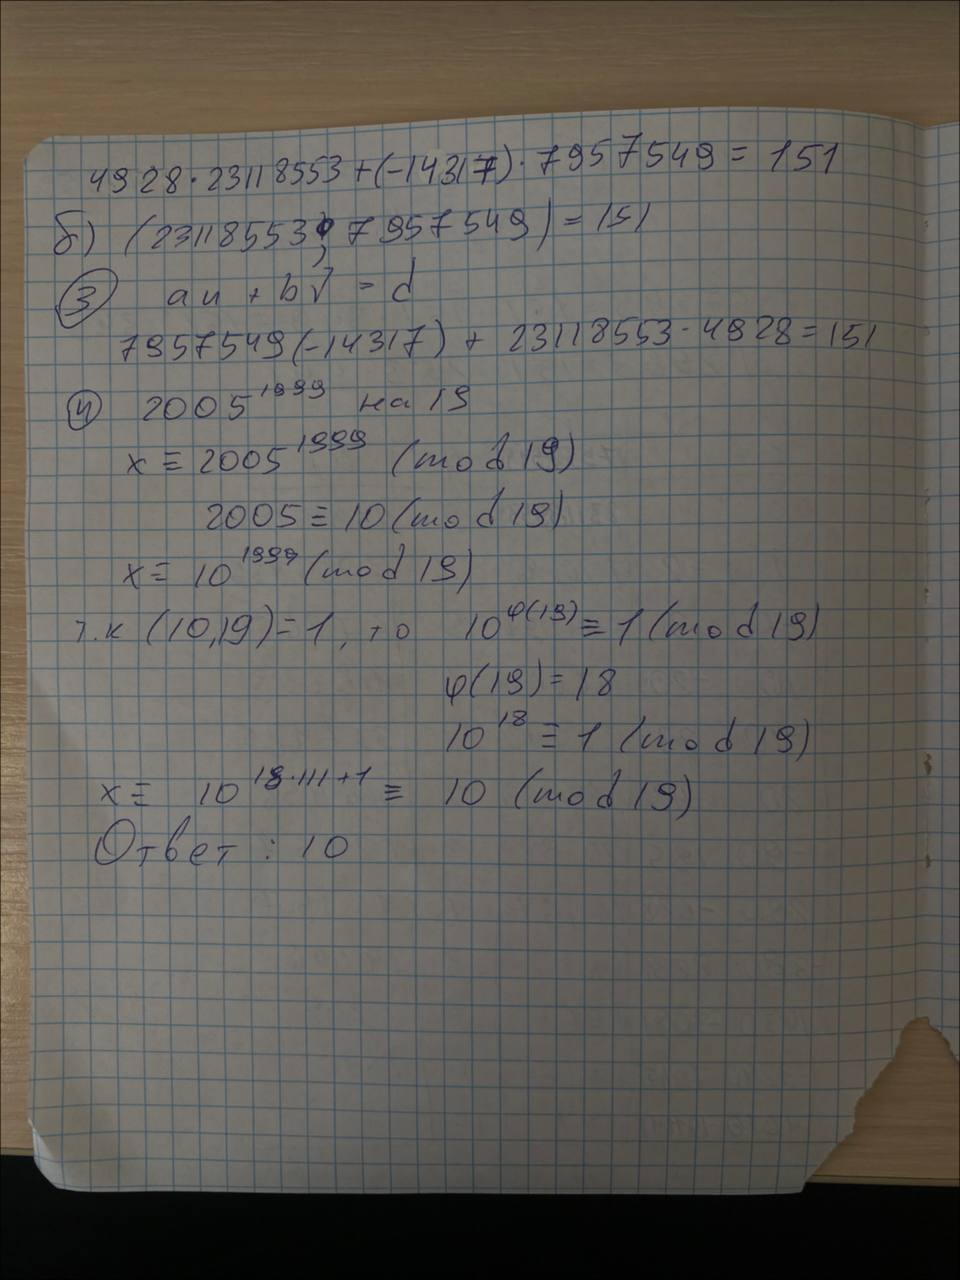 4928·23118553+(-14317)·7957549=151
б) (23118553; 7957549)=151
③ au + bV = d
7957549(-14317) + 23118553·4928=151
④ 2005^1999 на 19
x ≡ 2005^1999 (mod 19)
2005 ≡ 10 (mod 19)
x ≡ 10^1999 (mod 19)
т.к (10,19)=1, то 10^φ(19) ≡ 1 (mod 19)
φ(19)=18
10^18 ≡ 1 (mod 19)
x ≡ 10^18·111+1 ≡ 10 (mod 19)
Ответ: 10